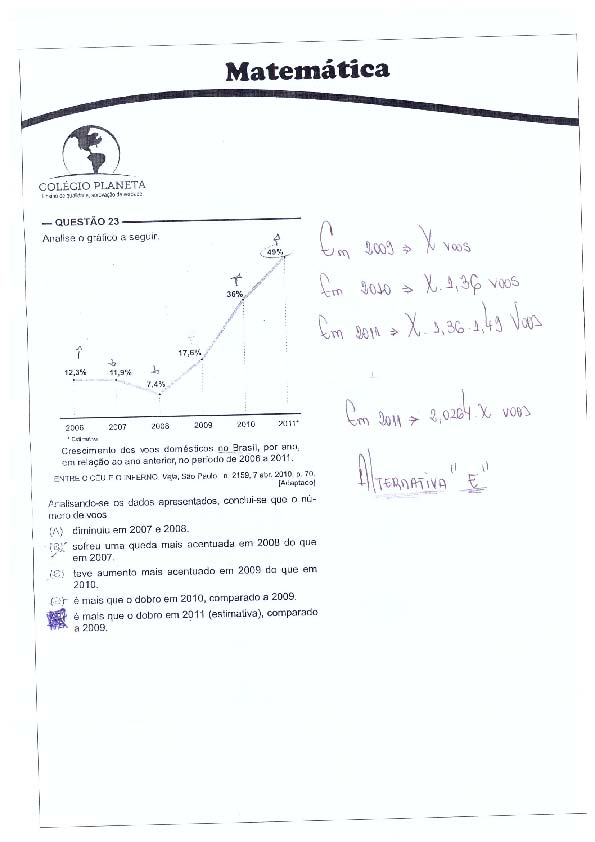 Matemática
COLÉGIO PLANETA
QUESTÃO 23
Analise o gráfico a seguir.
49%
36%
17,6%
12,3% 11,9%
7,4%
2006 2007 2008 2009 2010 2011*
* Estimativa
Crescimento dos voos domésticos no Brasil, por ano,
em relação ao ano anterior, no período de 2006 a 2011.
ENTRE O CÉU E O INFERNO. Veja, São Paulo, n. 2159, 7 abr. 2010, p. 70.
[Adaptado]
Analisando-se os dados apresentados, conclui-se que o nú-
mero de voos
(A) diminuiu em 2007 e 2008.
(B) sofreu uma queda mais acentuada em 2008 do que
em 2007.
(C) teve aumento mais acentuado em 2009 do que em
2010.
(D) é mais que o dobro em 2010, comparado a 2009.
é mais que o dobro em 2011 (estimativa), comparado
a 2009.
Em 2009 => X voos
Em 2010 => X . 1,36 voos
Em 2011 => X . 1,36 . 1,49 Voos
Em 2011 => 2,0264 . X voos
ALTERNATIVA "E"